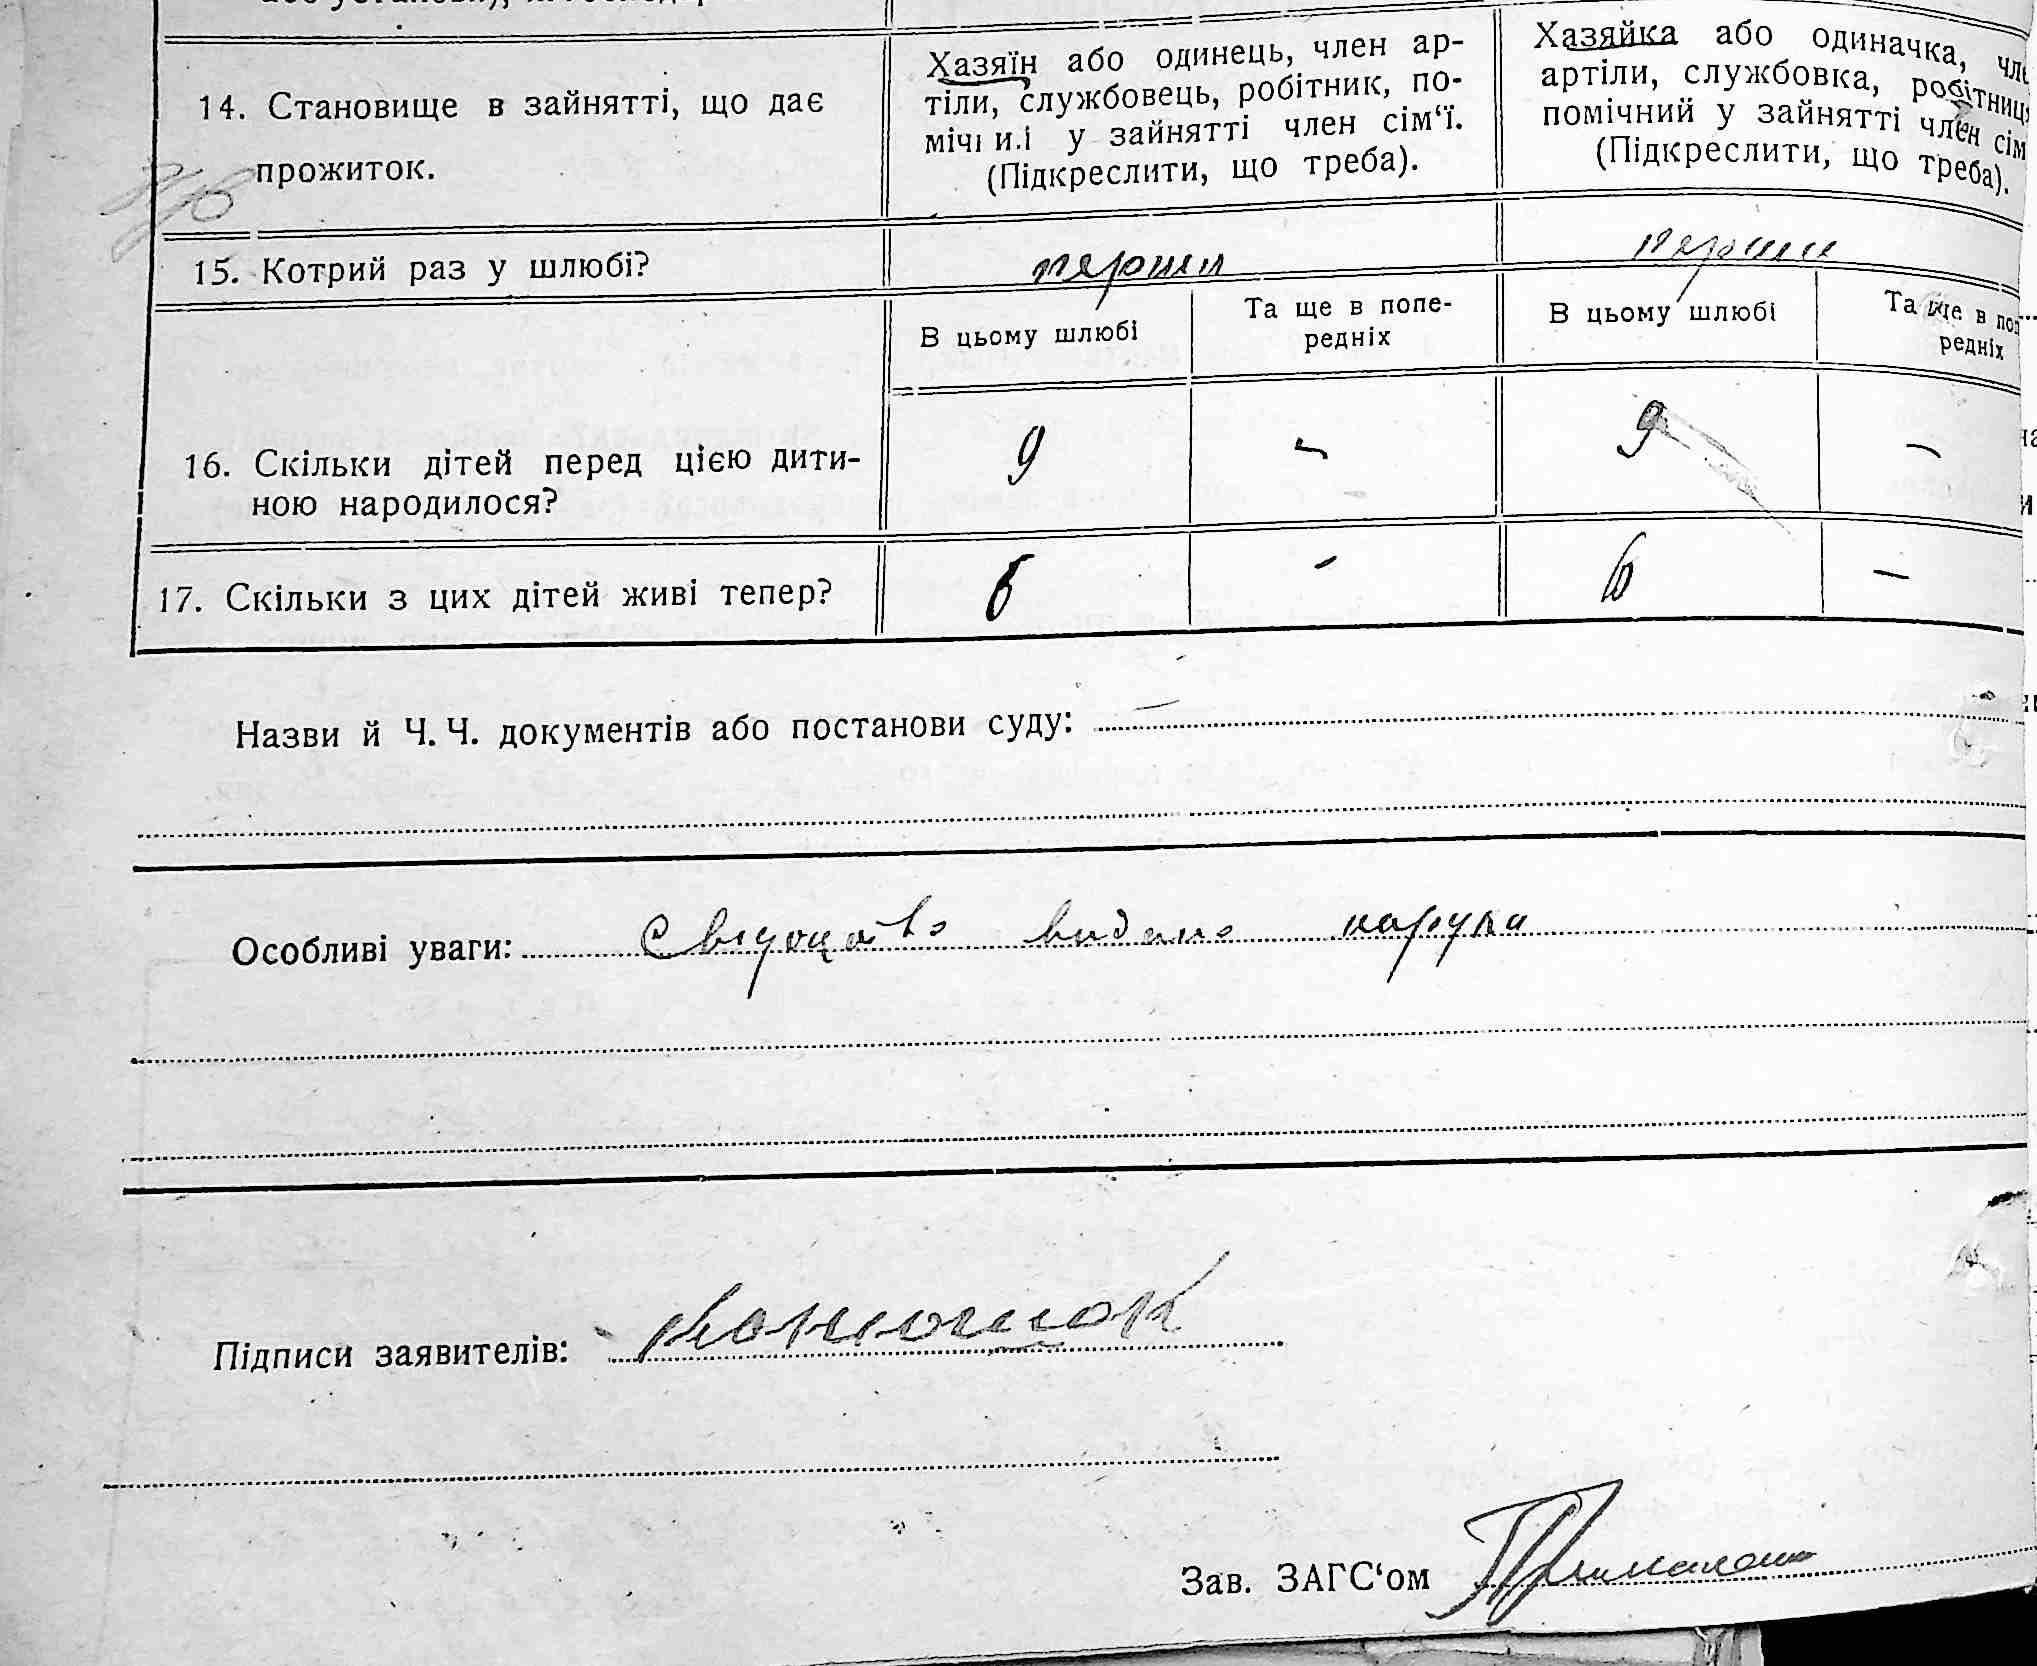 14. Становище в зайнятті, що дає
прожиток.
Хазяїн або одинець, член ар-
тіли, службовець, робітник, по-
мічни.і у зайнятті член сім‘ї.
(Підкреслити, що треба).
Хазяйка або одиначка, чле
артіли, службовка, робітниця
помічний у зайнятті член сім
(Підкреслити, що треба).
15. Котрий раз у шлюбі?
перший
перший
В цьому шлюбі
Та ще в попе-
редніх
В цьому шлюбі
Та ще в поп
редніх
16. Скільки дітей перед цією дити-
ною народилося?
9
-
9
-
17. Скільки з цих дітей живі тепер?
6
-
6
-
Назви й Ч. Ч. документів або постанови суду: —
Особливі уваги: Свідоцтво видано на руки
Підписи заявителів:
Зав. ЗАГС‘ом